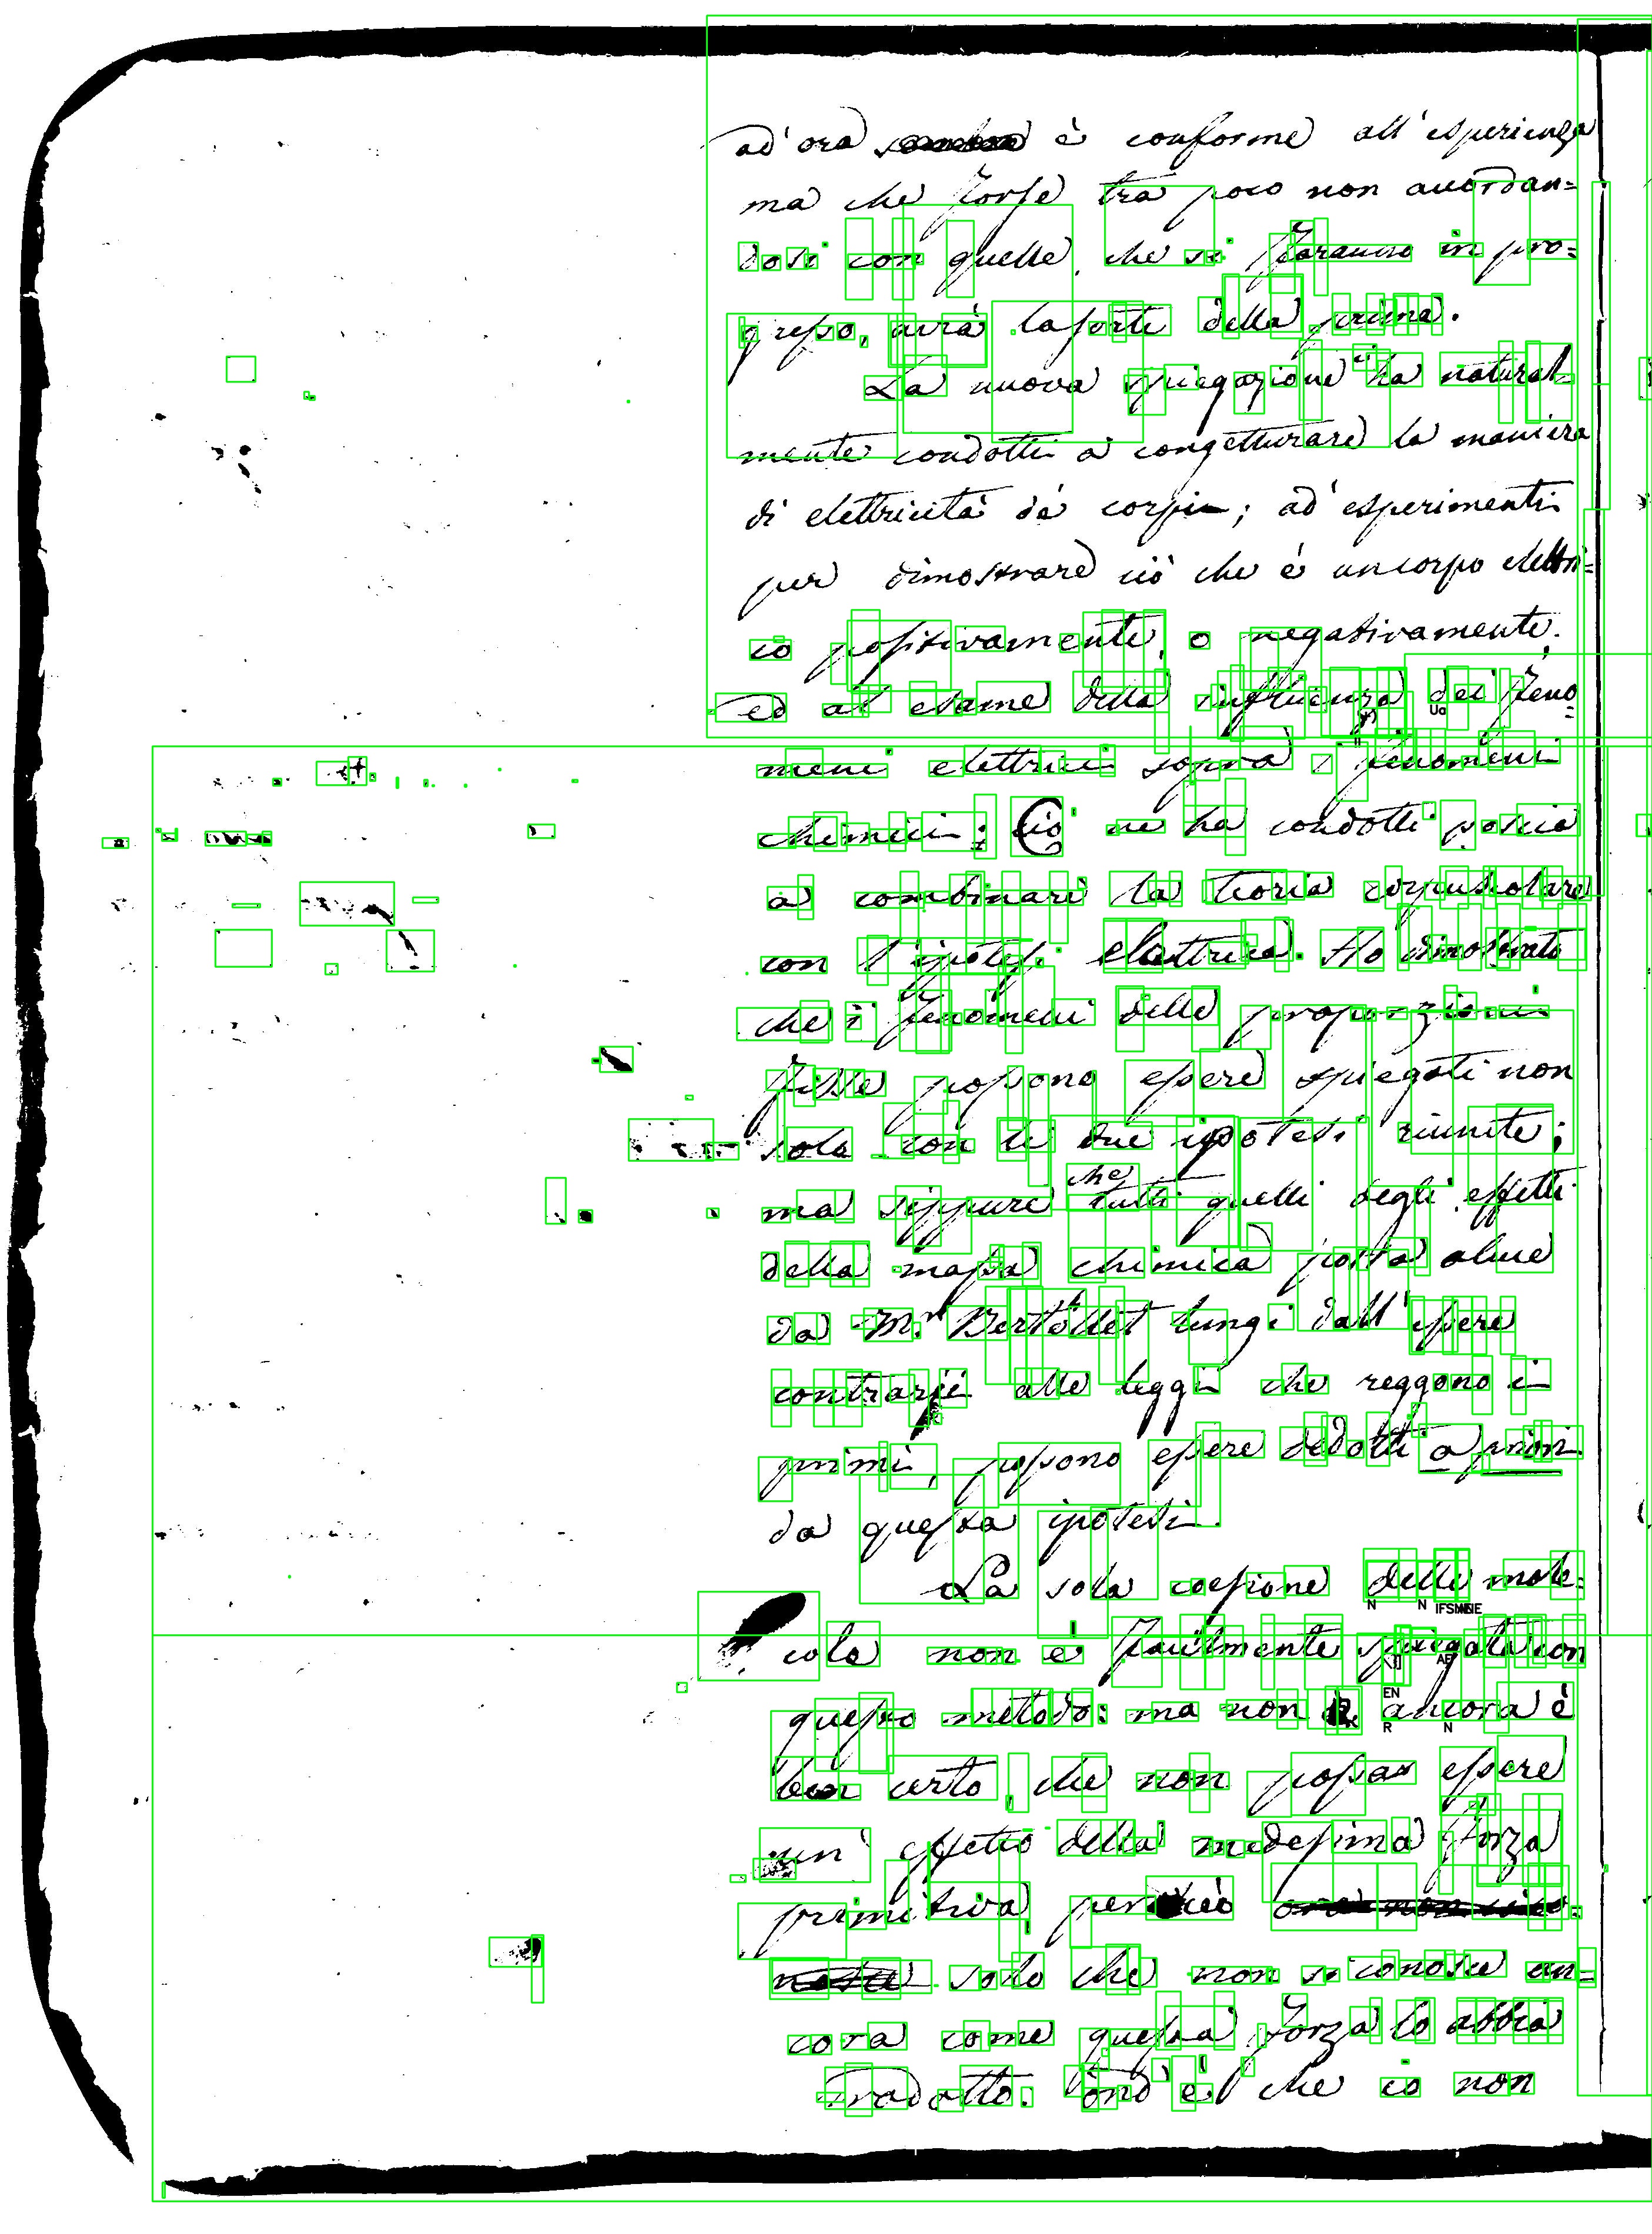 ad' ora è conforme all'esperienza
ma che forse tra poco non accordan=
dosi con quelle, che si faranno in pro=
gresso, avrà la sorte della prima.
La nuova spiegazione ha natural=
mente condotti a congetturare la maniera
di elettricità dà corpi; ad' esperimenti
per dimostrare ciò che è un corpo elettri=
co positivamente, o negativamente.
ed al esame della influenza dei feno=
meni elettrici sopra i fenomeni
chimici; Ciò ne ha condotti poscia
a combinare la teoria corpuscolare
con l'ipotesi elettrica. Ho dimostrato
che i fenomeni delle proporzioni
fisse possono essere spiegati non
solo con le due ipotesi riunite;
ma sippure che tutti quelli degli effetti
della massa chimica posta
da M.r Bertollet lungi dall' essere
contrarii alle leggi che reggono i
primi, possono essere dedotti a priori
da questa ipotesi.
La sola coesione delle mole=
cole non è facilmente spiegata con
questo metodo: ma non ancora è
ben certo, che non possa essere
un' effetto della medesima forza
primitiva perciò
solo che non si conosce an=
cora come questa forza lo abbia
prodotto. ond' è che io non